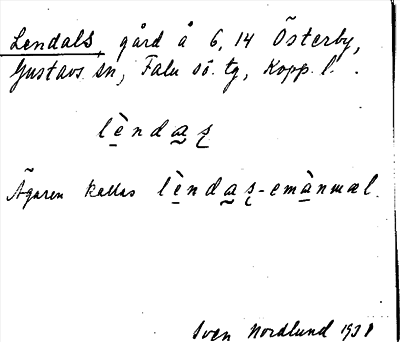 Lendals, gård å 6,14 Österby,
Gustavs sn, Falu sö. tg, Kopp. l.
lèndaʂ
Ägaren kallas lèndaʂ-emànuæl.
Sven Nordlund 1938